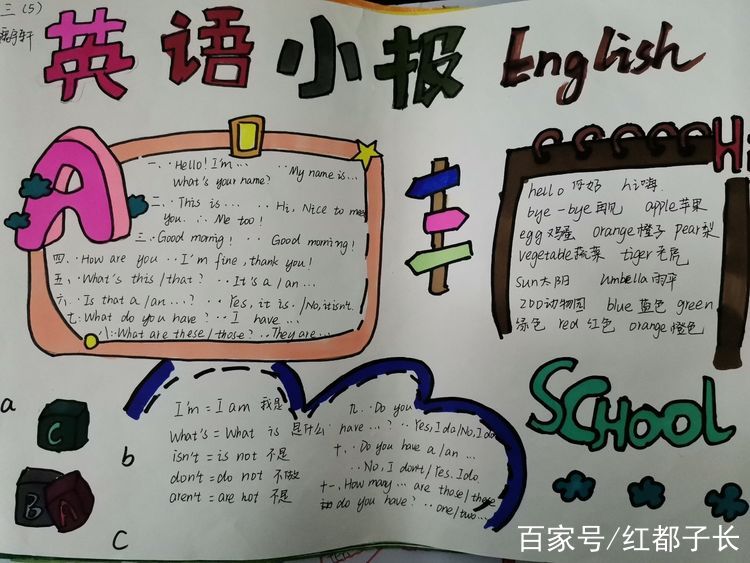 三(5)
英语小报 English
A
一、··Hello! I'm... ··My name is...
What's your name?
二、··This is... ··Hi, Nice to mee
you. ∴ Me too!
三.·Good morning! ·· Good morning!
四、··How are you ··I'm fine, thank you!
五、·What's this/that? ··It's a/an...
六、·Is that a/an...? ··Yes, it is./No, it isn't.
七:·What do you have? ··I have...
八:·What are these/those? ··They are...
H
hello 你好 hi 嗨
bye-bye 再见 apple 苹果
egg 鸡蛋 orange 橙子 pear 梨
vegetable 蔬菜 tiger 老虎
sun 太阳 umbella 雨伞
zoo 动物园 blue 蓝色 green
绿色 red 红色 orange 橙色
SCHOOL
a
C
B A
b
c
I'm = I am 我是
What's = What is 是什么
isn't = is not 不是
don't = do not 不做
aren't = are not 不是
九、·Do you
have...? ··Yes, I do/No, I do
十、·Do you have a/an...
··No, I don't/Yes. I do.
十一、How many... are those/these
do you have? ··one/two...
百家号/红都子长